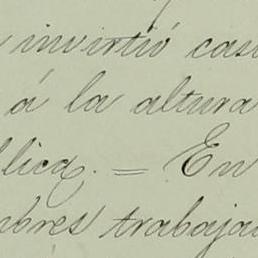 invirtió cas
á la altura
blica. = En
mbres trabaja